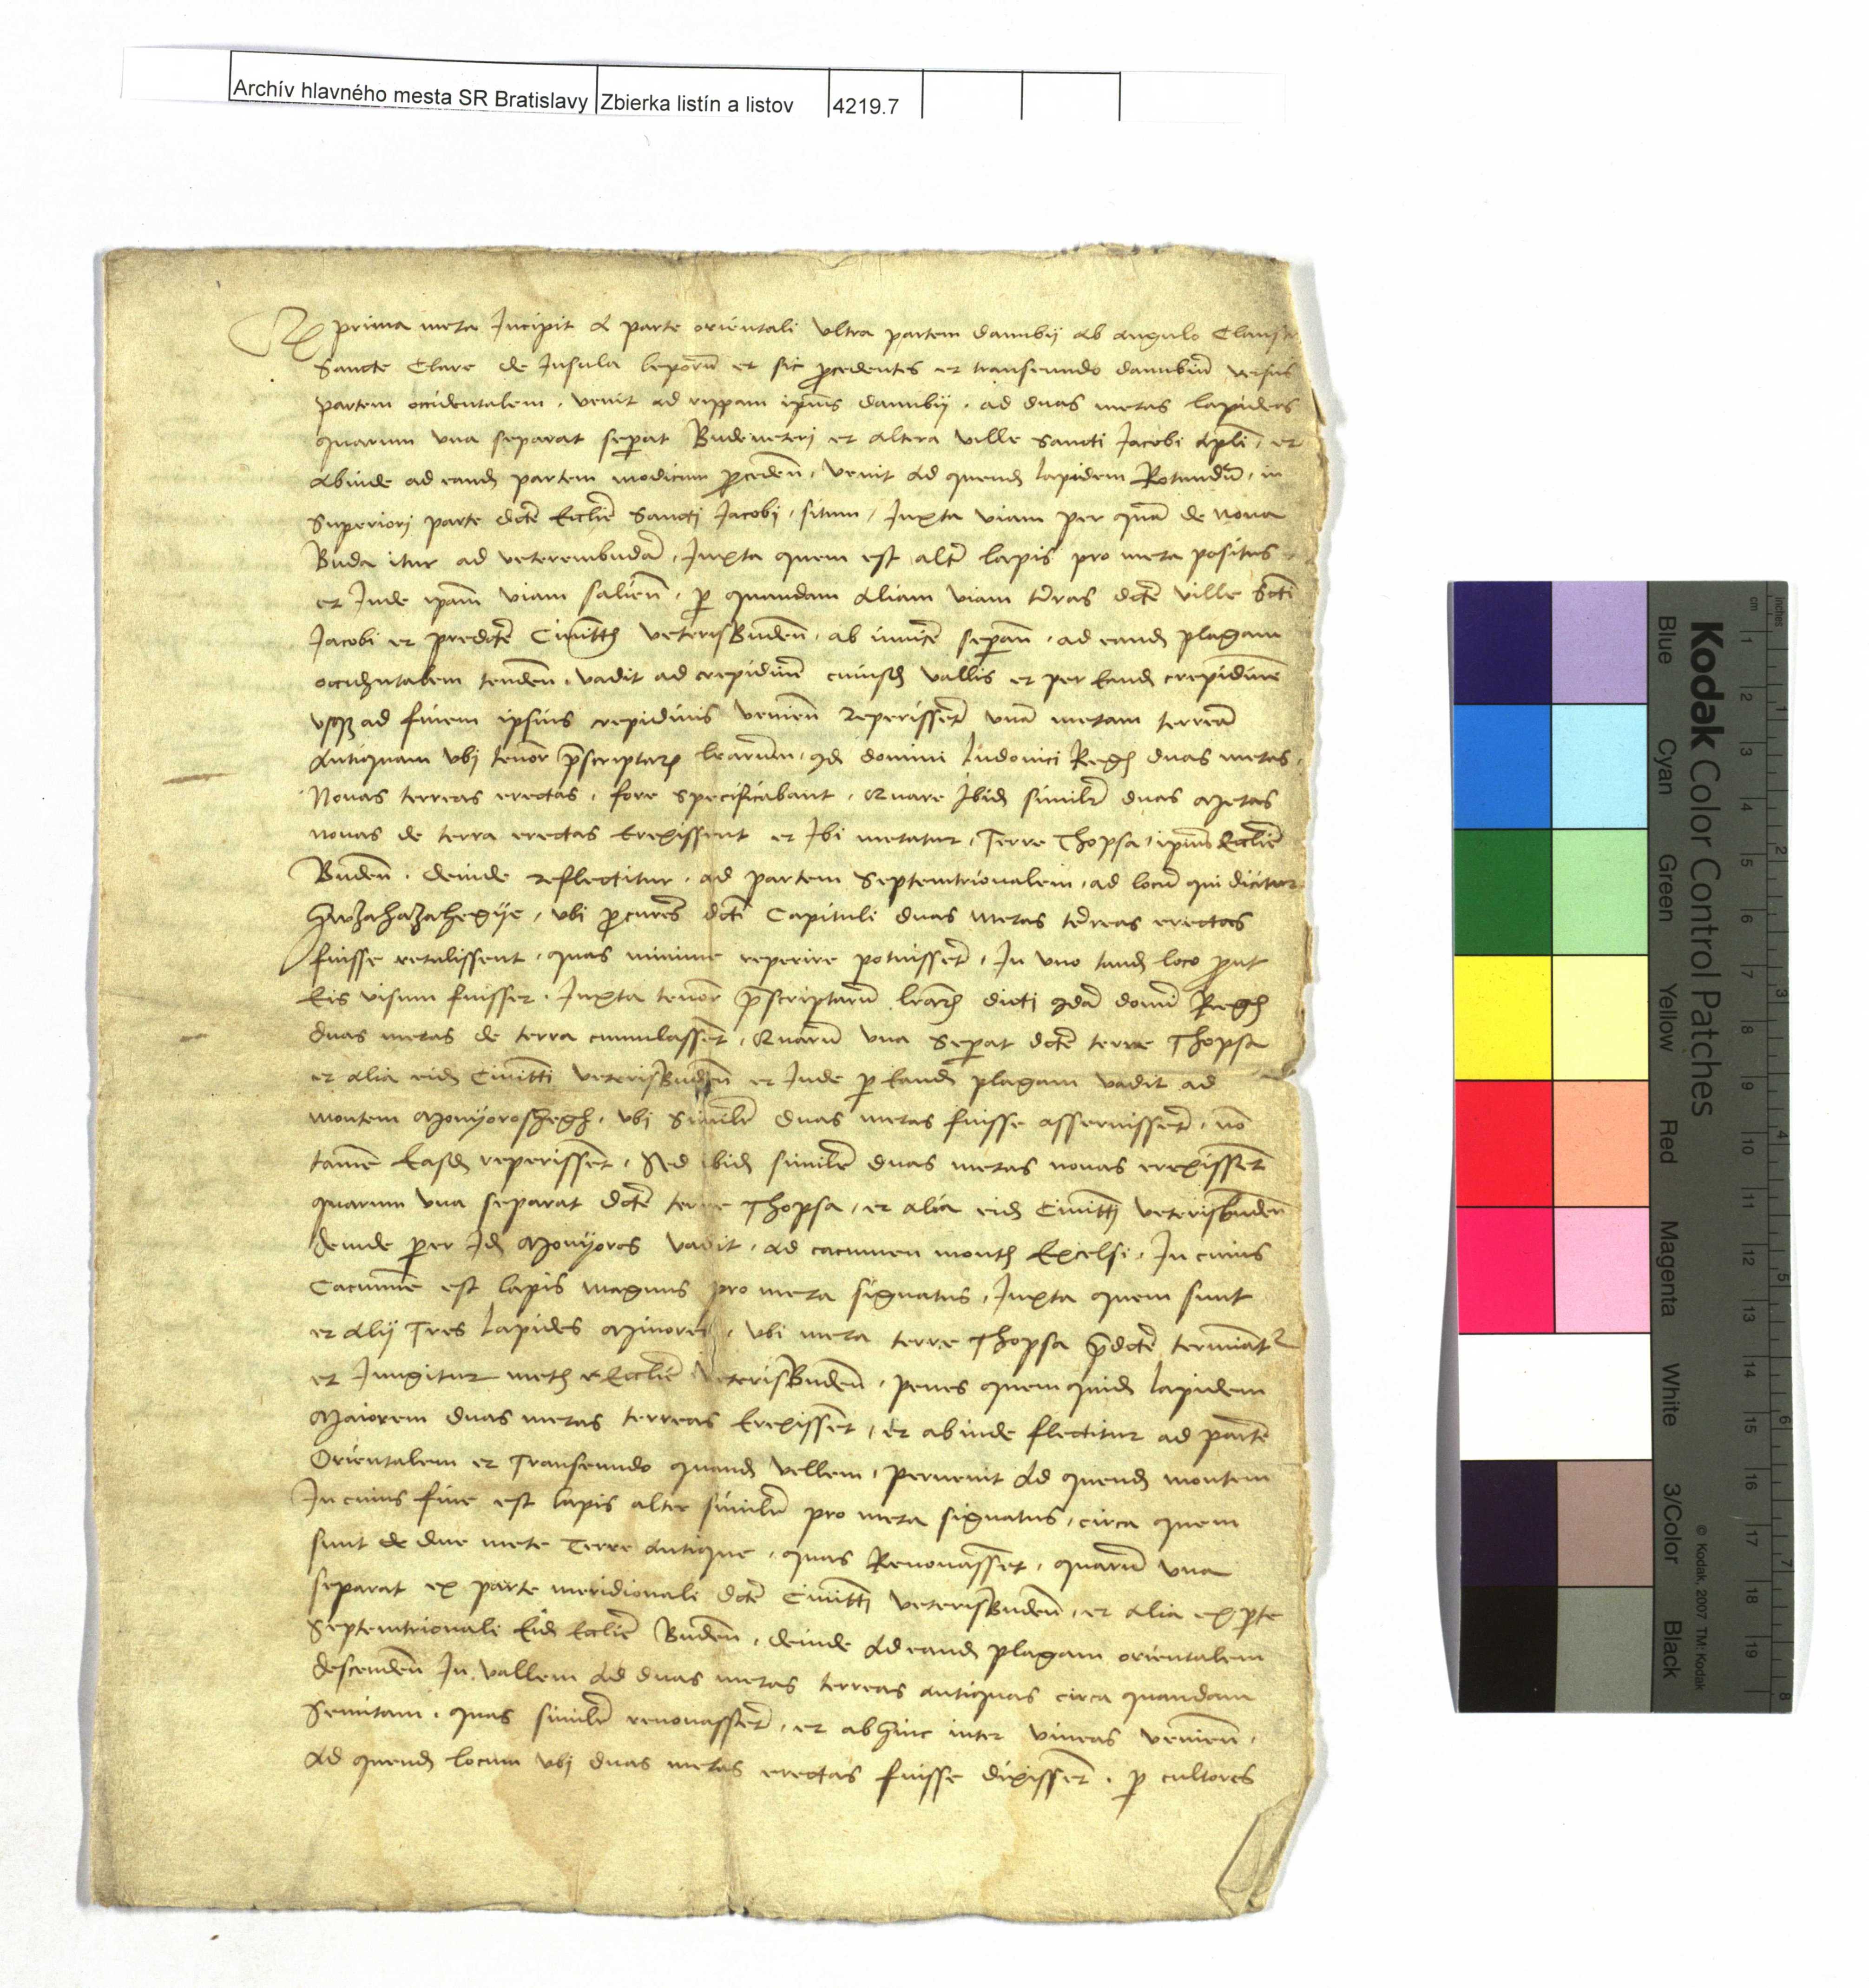 Archív hlavného mesta SR Bratislavy Zbierka listín a listov 4219.7
prima meta Incipit a parte orientali vltra partem danubij ab angulo Claustr
Sancte Clare de Insula leporu᷑ et sic ꝓcedentes et transeundo danubiu᷑ versus
partem occidentalem . venit ad rippam ip̅ius danubij . ad duas metas lapideas
quarum vna separat seꝑat Budeueteri et altera ville Sancti Jacobi apl̅i, et
abinde ad eand partem modicum ꝓceden̅, venit ad quend lapidem Rotundu̅, in
Superiorj parte dc̅te Eccl̅ie Sancti Jacobj, situm, Juxta viam per qua̅ de Noua
Buda itur ad veterembuda̅, Juxta quem est alt̅ lapis pro meta positus
et Inde ip̅am viam salien̅, ꝑ quandam aliam viam t̅ras dc̅te ville Sc̅ti
Jacobi et predc̅te Ciuitt̅ veterisBuden̅, ab inuice̅ seꝑan̅, ad eand plagam
occidentalem tenden̅, vadit ad crepidine̅ cuiusd vallis et per Eand crepidine̅
vsqꝫ ad finem ipsius crepidinis venien̅ reperisset̅ vna̅ metam terrea̅
Antiquam vbj tenor̅ p̅scriptarꝝ l̅rarum, qd domini Ludouici Reg duas metas,
Nouas terreas erectas, fore specificabant, Quare Ibid simil̅r duas Metas
nouas de terra erectas Erexissent et Ibi metatur, Terre Thopsa, ip̅ius Eccl̅ie
Buden̅ . deinde reflectitur . ad partem Septemtrionalem, ad locu̅ qui dicitur
vbi ꝓcures̅ dc̅ti Capituli duas Metas t̅reas erectas
fuisse retulissent, quas minime reperire potuisset̅, In vno tand loco ꝓut
Eis visum fuisset . Juxta tenor̅ p̅scriptaru̅ l̅rar̅ dicti qda̅ domi̅ Reg
duas metas de terra cumulasset̅, Quaru̅ vna Seꝑat dc̅te terre Thopsa
et alia eid Ciuitti̅ veterisBuden̅ et Inde ꝑ Eand plagam vadit ad
montem Monyoroshegh, vbi Simil̅r duas metas fuisse asseruisset̅, no̅
tame̅ Easd reperisset̅, Sed ibid simil̅r duas metas nouas erexisset̅
quarum vna separat dc̅te terre Thopsa, et alia eid Ciuitti̅ veterisbuden̅
deinde per Id Monyoros vadit, ad cacumen mont Excelsi, In cuius
Cacumine̅ est lapis magnus pro meta signatus, Juxta quem sunt
et alij Tres Lapides Minores, vbi meta terre Thopsa p̅dc̅te terminat᷑
et Jungitur met Eccl̅ie veterisBuden̅, penes quem quid lapidem
Maiorem duas metas terreas Erexisset̅, et abinde flectitur ad parte̅
Orientalem et Transeundo quand vallem, peruenit ad quend montem
In cuius fine est lapis alter simil̅r pro meta signatus, circa quem
sunt de due mete Terre antique, quas Renouasset̅, quaru̅ vna
separat ex parte meridionali dc̅te Ciuitti̅ veterisBuden̅, et alia ex ꝑte
Septemtrionali Eid Eccl̅ie Buden̅, deinde ad eand plagam orientalem
descenden̅ In vallem ad duas metas terreas antiquas circa quandam
Semitam, quas simil̅r renouasset̅, et abhinc inter vineas venien̅,
ad quend locum vbj duas metas erectas fuisse dixisset̅, ꝑ cultores
Kodak Color Control Patches
© Kodak, 2007 TM: Kodak
Blue Cyan Green Yellow Red Magenta White 3/Color Black
inches 1 2 3 4 5 6 7 8
cm 1 2 3 4 5 6 7 8 9 10 11 12 13 14 15 16 17 18 19